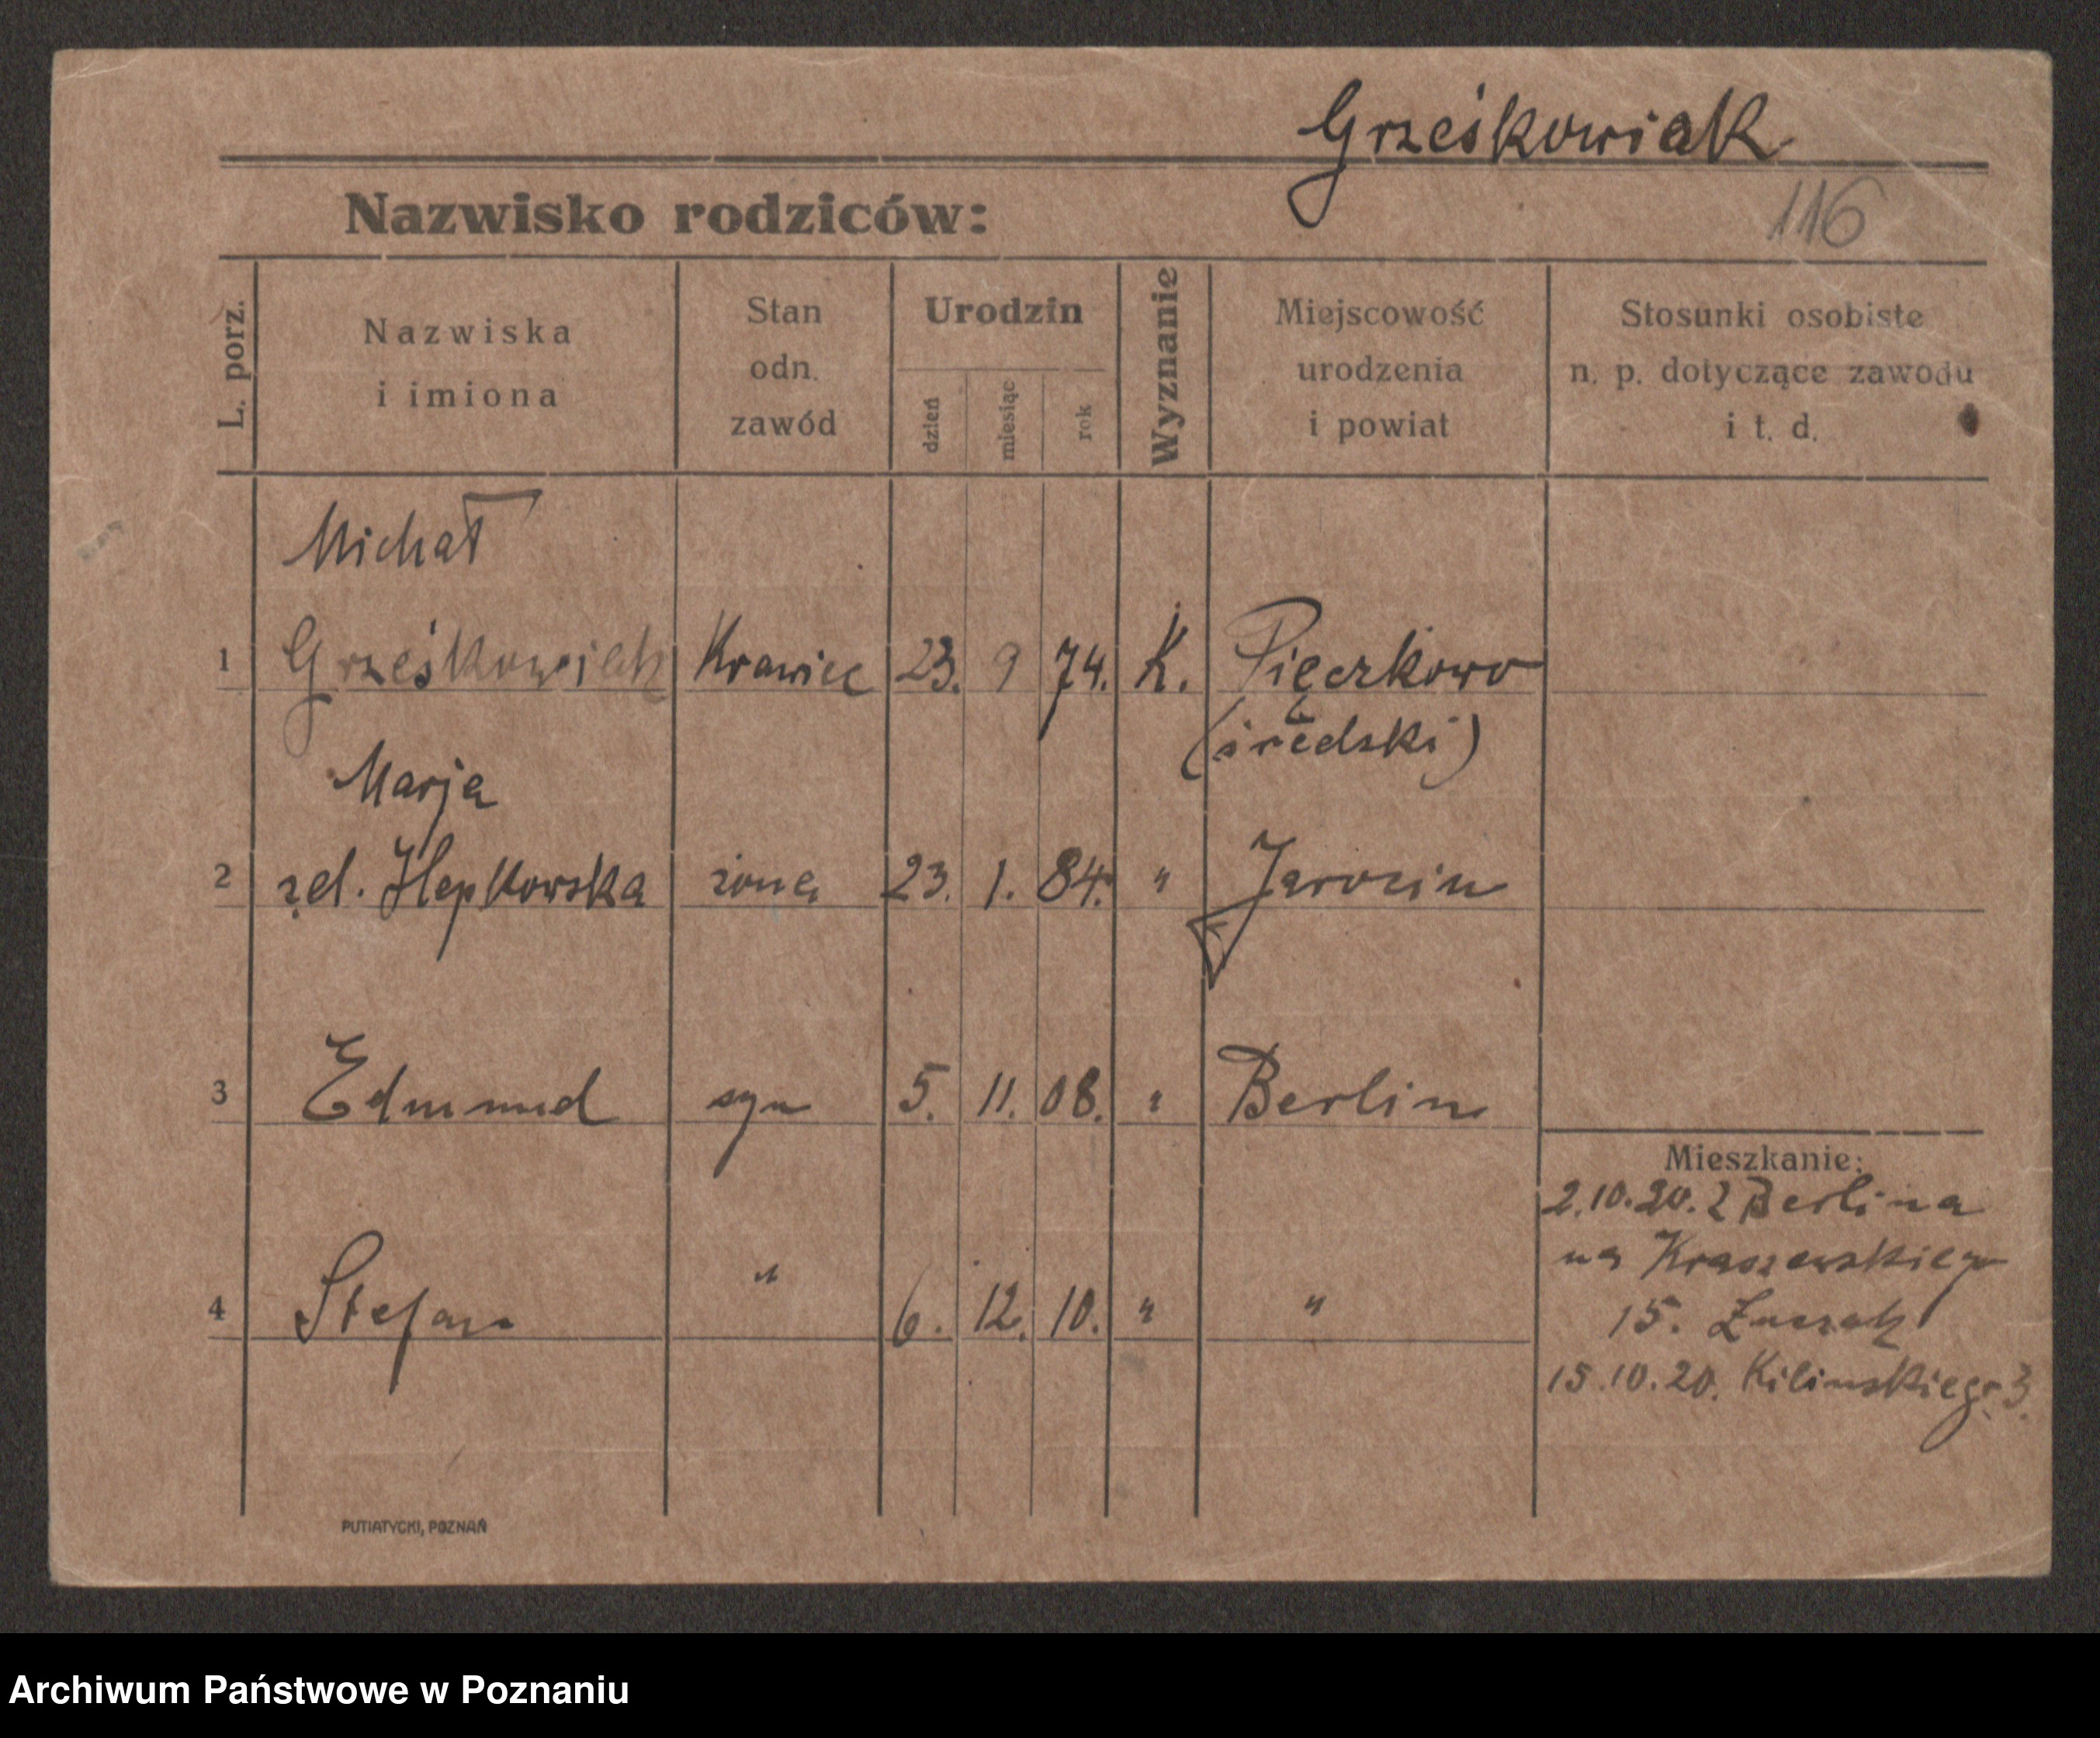 Grześkowiak
Nazwisko rodziców:
116
L. porz.
Nazwiska
i imiona
Stan
odn.
zawód
Urodzin
dzień
miesiąc
rok
Wyznanie
Miejscowość
urodzenia
i powiat
Stosunki osobiste
n. p. dotyczące zawodu
i t. d.
Michał
1 Grześkowiak Krawiec 23. 9 74. K. Pięczkowo
(średski)
Marja
2 Hepkowska żona 23. 1. 84. " Jarocin
3 Edmund syn 5. 11. 08. " Berlin
Mieszkanie:
2.10.20. z Berlina
na Kraszewskiego
4 Stefan " 6. 12. 10. " "
15.
15.10.20. Kilinskiego 3.
PUTIATYCKI, POZNAŃ
Archiwum Państwowe w Poznaniu